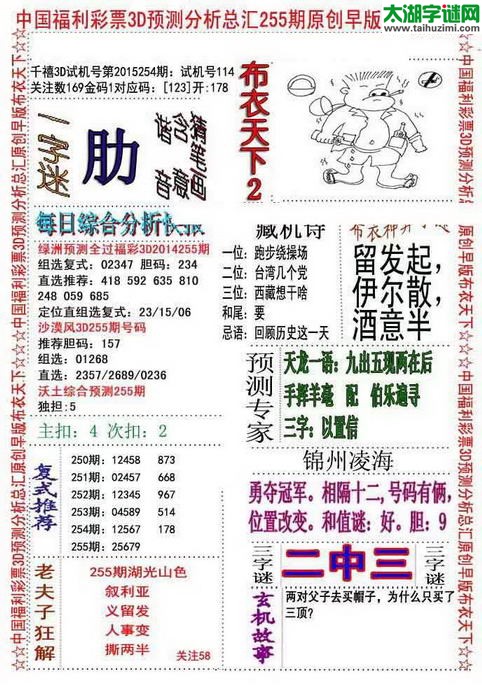 太湖字谜网
www.taihuzimi.com
中国福利彩票3D预测分析总汇255期原创早版
☆☆中国福利彩票3D预测分析总汇原创早版布衣天下☆☆
千禧3D试机号第2015254期：试机号114
关注数169金码1对应码：[123]开：178
布衣天下2
一字迷
肋
猜笔画
含意
谐音
每日综合分析快报
绿洲预测全过福彩3D2014255期
组选复式：02347 胆码：234
直选推荐：418 592 635 810
248 059 685
定位直组选复式：23/15/06
沙漠风3D255期号码
推荐胆码：157
组选：01268
直选：2357/2689/0236
沃土综合预测255期
独担：5
主扣：4 次扣：2
藏机诗
一位：跑步绕操场
二位：台湾几个党
三位：西藏想干啥
和尾：要
忌语：回顾历史这一天
留发起，
伊尔散，
酒意半
预测专家
天龙一语：九出五现两在后
手挥羊毫 配 伯乐追寻
三字：以置信
锦州凌海
勇夺冠军。相隔十二，号码有俩，
位置改变。和值谜：好。胆：9
复式推荐
250期：12458 873
251期：02457 668
252期：12345 967
253期：04589 514
254期：12567 178
255期：25679
三字谜
二中三
三字谜
老夫子狂解
255期湖光山色
叙利亚
义留发
人事变
撕两半
关注58
玄机故事
两对父子去买帽子，为什么只买了
三顶？